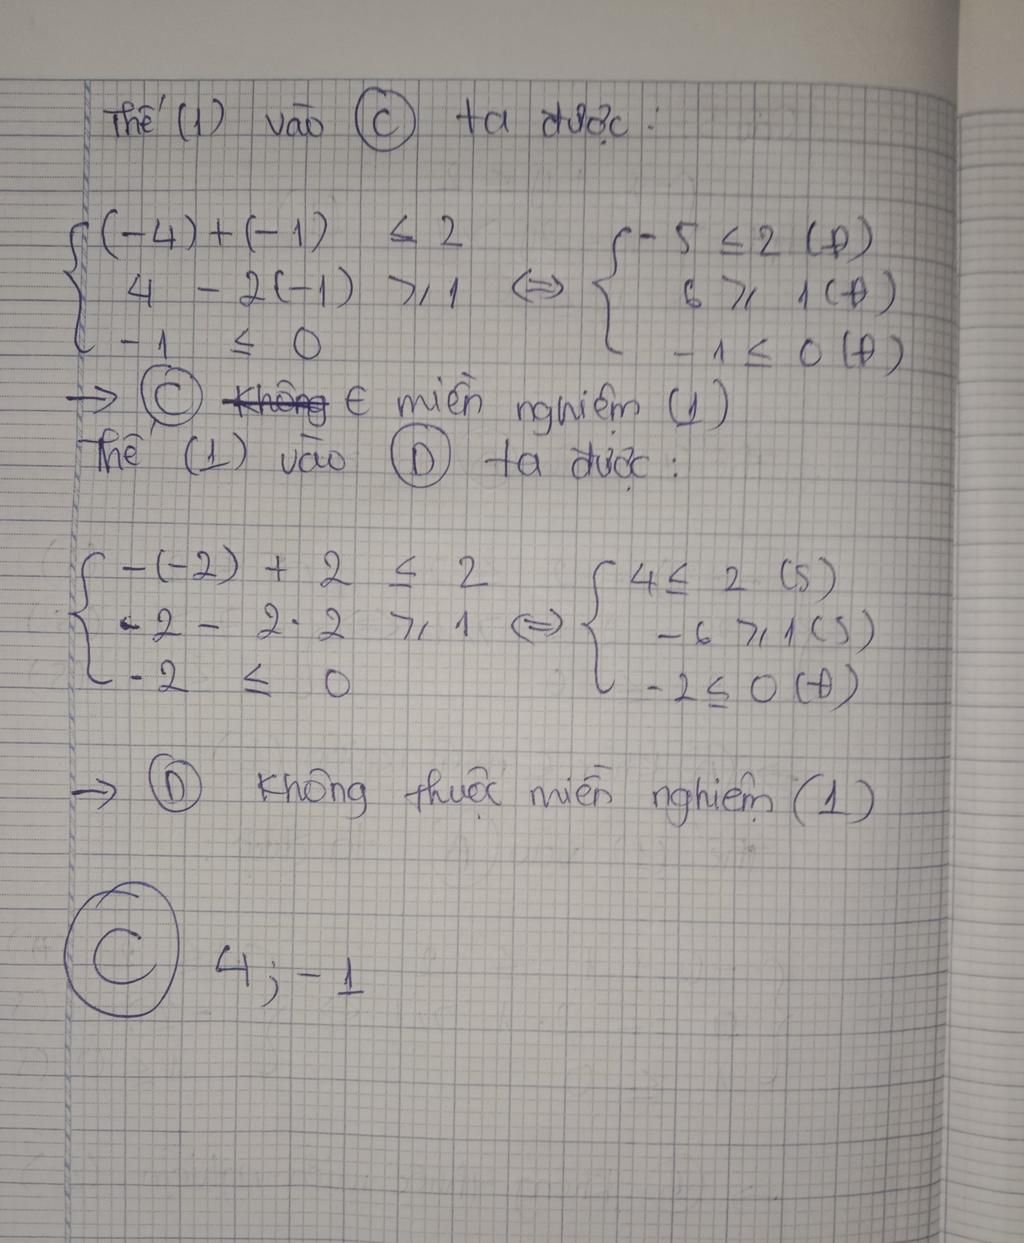 Thế (1) vào C ta được:
(-4)+(-1) ≤ 2 -5 ≤ 2 (Đ)
4 - 2(-1) ≥ 1 ⇔ 6 ≥ 1 (Đ)
-1 ≤ 0 -1 ≤ 0 (Đ)
→ C không ∈ miền nghiệm (1)
Thế (1) vào D ta được:
-(-2) + 2 ≤ 2 4 ≤ 2 (S)
-2 - 2.2 ≥ 1 ⇔ -6 ≥ 1 (S)
-2 ≤ 0 -2 ≤ 0 (Đ)
→ D không thuộc miền nghiệm (1)
C 4; -1